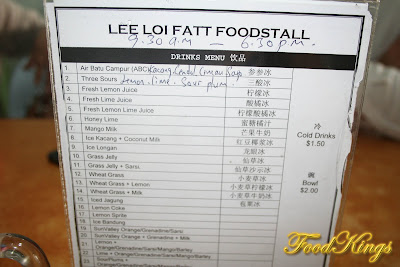 LEE LOI FATT FOODSTALL
9.30 a.m — 6.30 p.m.
DRINKS MENU 饮品
1. Air Batu Campur (ABC)
2. Three Sours Lemon. lime. Sour plum. 三酸冰
3. Fresh Lemon Juice 柠檬冰
4. Fresh Lime Juice 酸橘冰
5. Fresh Lemon Lime Juice 柠檬酸橘冰
6. Honey Lime 蜜糖橘汁
7. Mango Milk 芒果牛奶
8. Ice Kacang + Coconut Milk 红豆椰浆冰
9. Ice Longan 龙眼冰
10. Grass Jelly 仙草冰
11. Grass Jelly + Sarsi. 仙草沙示冰
12. Wheat Grass 小麦草冰
13. Wheat Grass + Lemon 小麦草柠檬冰
14. Wheat Grass + Milk 小麦草牛奶冰
15. Iced Jagung
16. Lemon Coke
17. Lemon Sprite
18. Ice Bandung
19. SunValley Orange/Grenadine/Sarsi
20. SunValley Orange + Grenadine + Milk
21. Coke
22. Lemon+ Orange/Grenadine/Sarsi/Mango/Barley
23. Lime + Orange/Grenadine/Sarsi/Mango/Barley
冷
Cold Drinks
$1.50
碗
Bowl
$2.00
FoodKings